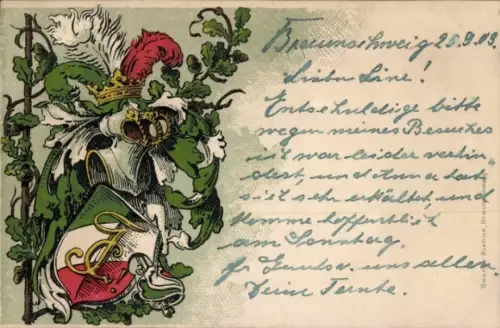 Braunschweig 25.9.03.
Liebe Line!
Entschuldige bitte
wegen meines Besuches
ich war leider verhin
dert, und Anna hat
sich sehr erkältet, und
komme hoffentlich
am Sonntag.
Gruß u. uns allen
Deine